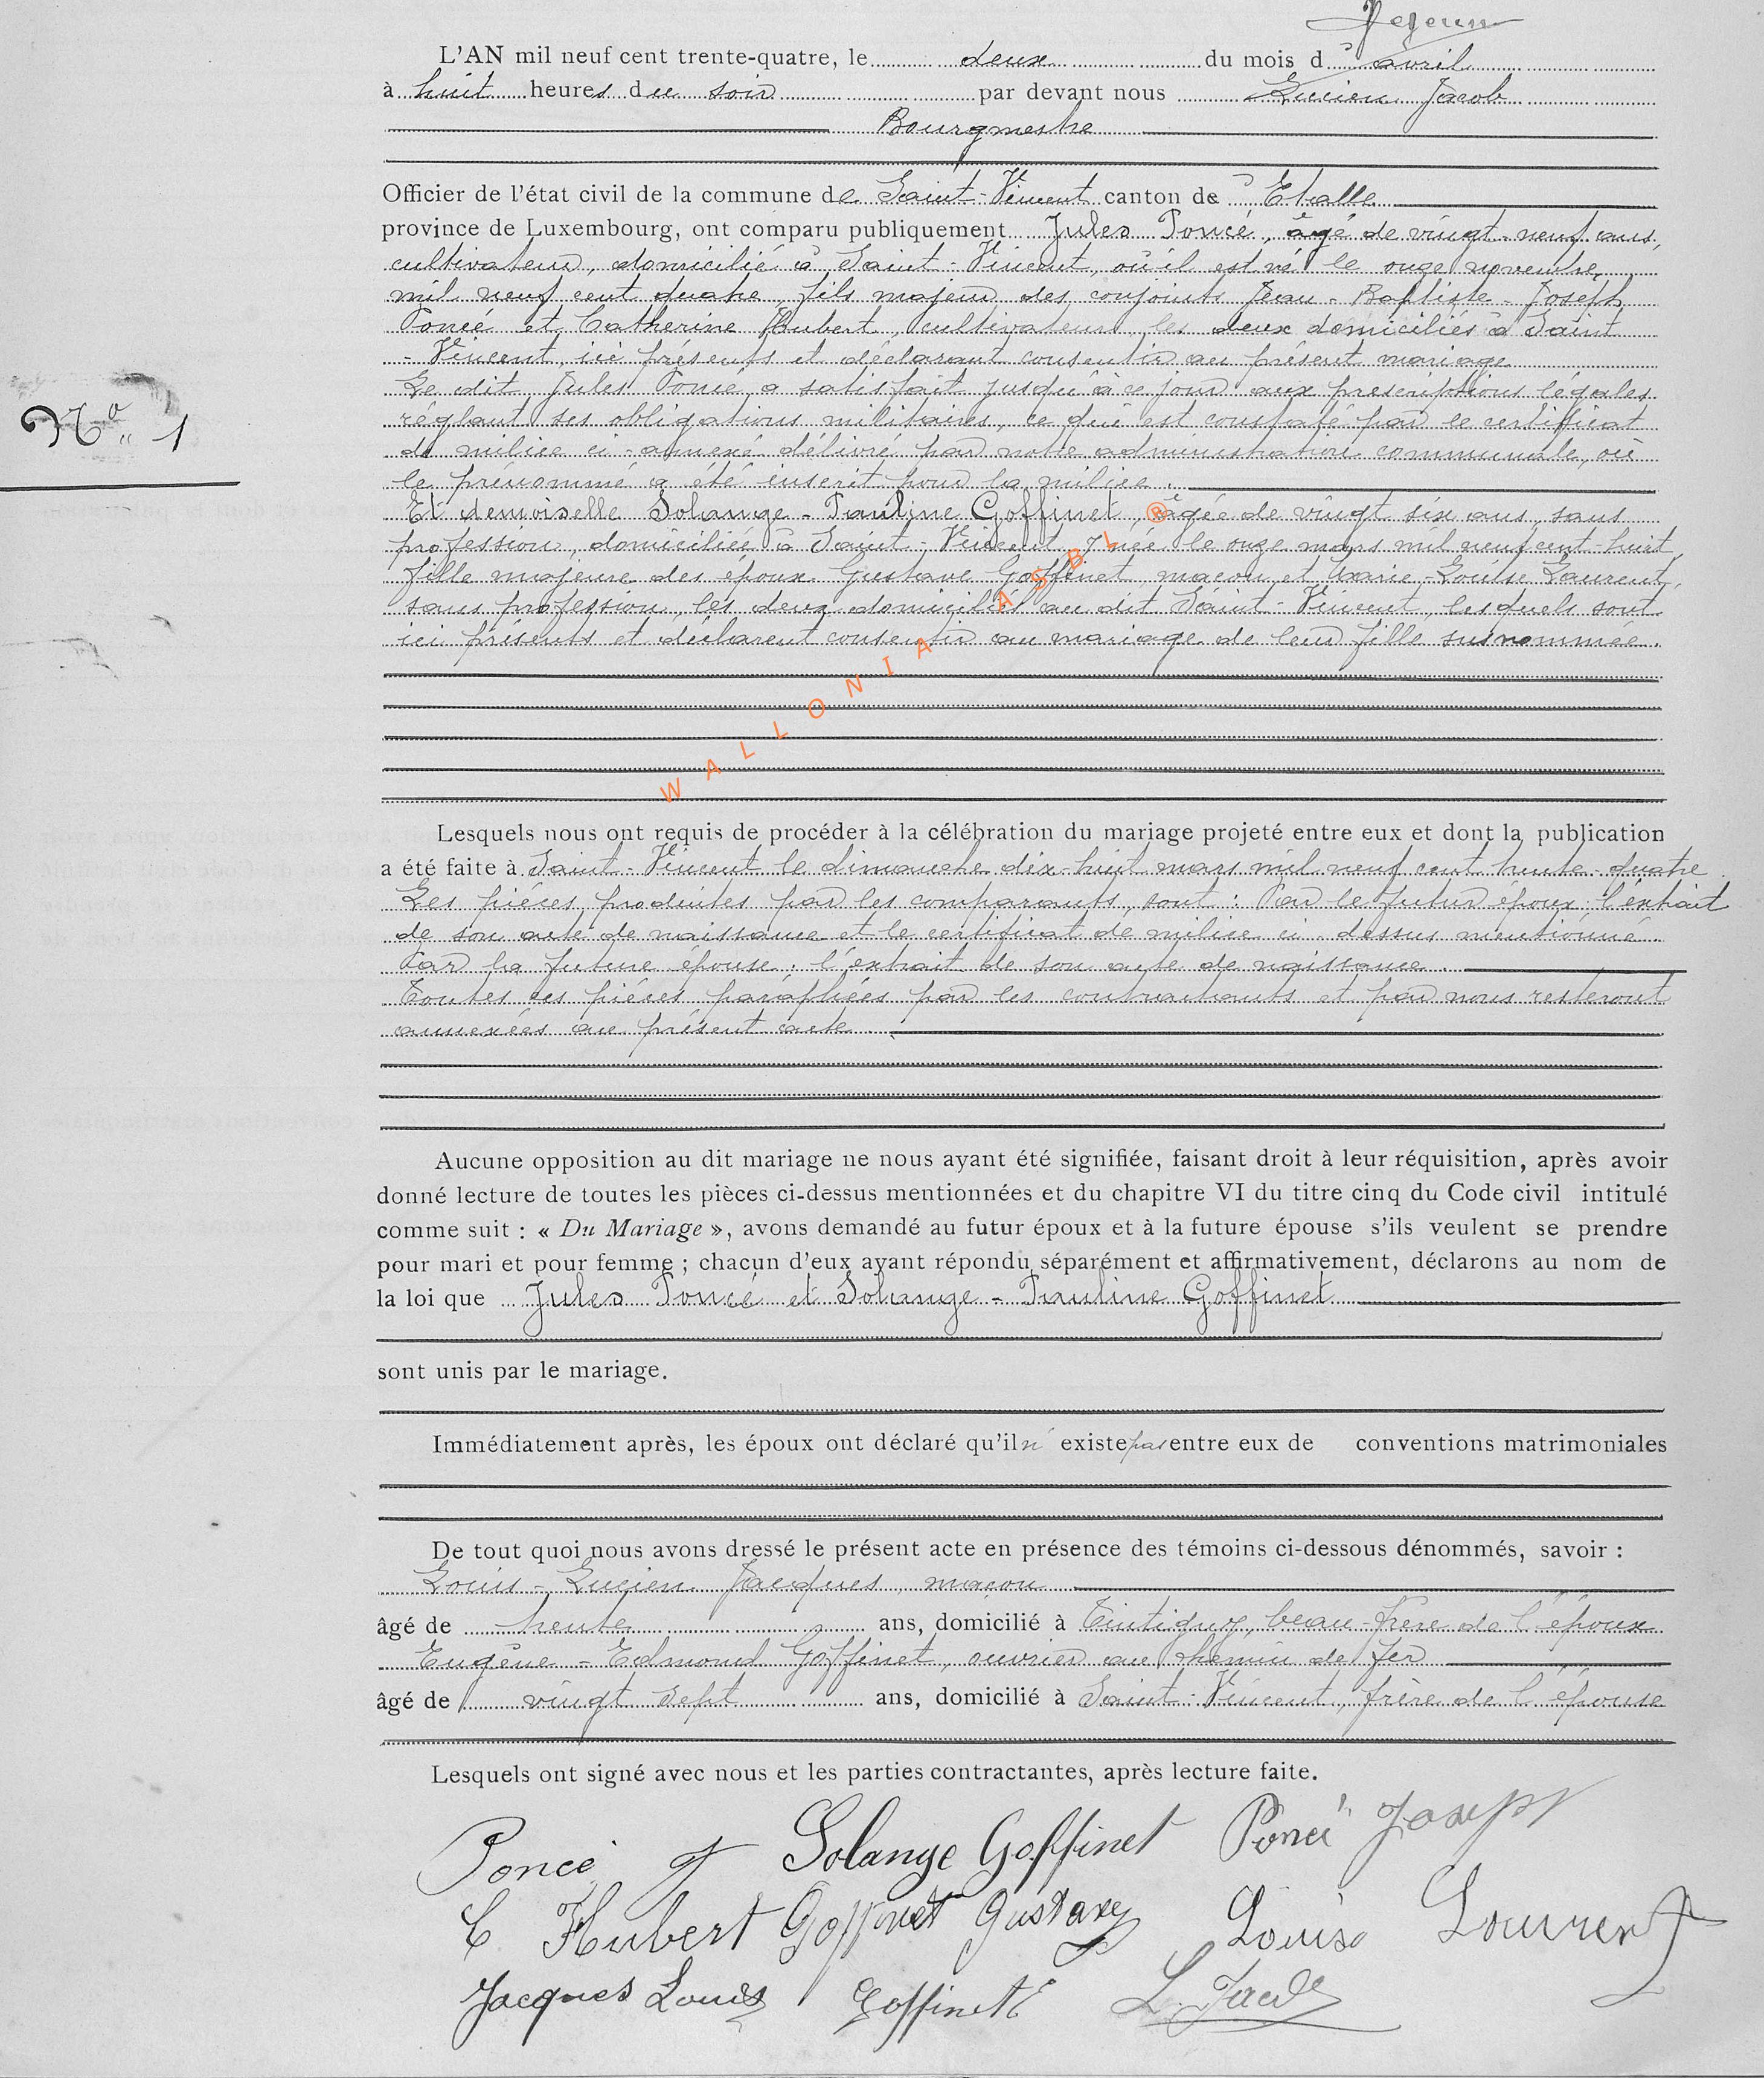 L'AN mil neuf cent trente-quatre, le deux du mois d' avril
à huit heures du soir par devant nous Lucien Jacob
Bourgmestre
Officier de l'état civil de la commune de Saint-Vincent canton de Etalle
province de Luxembourg, ont comparu publiquement Jules Poncé, âgé de vingt-neuf ans,
cultivateur, domicilié à Saint-Vincent, où il est né le onze novembre
mil neuf cent quatre, fils majeur des conjoints Jean-Baptiste-Joseph
Poncé et Catherine Hubert, cultivateurs, les deux domiciliés à Saint
-Vincent, ici présents et déclarant consentir au présent mariage.
Le dit Jules Poncé a satisfait jusqu'à ce jour aux prescriptions légales
réglant ses obligations militaires, ce qui est constaté par le certificat
de milice ci-annexé délivré par notre administration communale, où
le prénommé a été inscrit pour la milice.
N° 1
Et demoiselle Solange-Pauline Goffinet, âgée de vingt six ans, sans
profession, domiciliée à Saint-Vincent, y née le onze mars mil neuf cent-huit,
fille majeure des époux Gustave Goffinet, maçon, et Marie-Louise Laurent,
sans profession, les deux domiciliés au dit Saint-Vincent, lesquels sont
ici présents et déclarent consentir au mariage de leur fille susnommée.
WALLONIA ASBL ®
Lesquels nous ont requis de procéder à la célébration du mariage projeté entre eux et dont la publication
a été faite à Saint-Vincent le dimanche dix-huit mars mil neuf cent trente-quatre
Les pièces produites par les comparants, sont : Par le futur époux : l'extrait
de son acte de naissance et le certificat de milice ci-dessus mentionné.
Par la future épouse : l'extrait de son acte de naissance.
Toutes ces pièces paraphées par les contractants et par nous resteront
annexées au présent acte.
Aucune opposition au dit mariage ne nous ayant été signifiée, faisant droit à leur réquisition, après avoir
donné lecture de toutes les pièces ci-dessus mentionnées et du chapitre VI du titre cinq du Code civil intitulé
comme suit : « Du Mariage », avons demandé au futur époux et à la future épouse s'ils veulent se prendre
pour mari et pour femme ; chacun d'eux ayant répondu séparément et affirmativement, déclarons au nom de
la loi que Jules Poncé et Solange-Pauline Goffinet
sont unis par le mariage.
Immédiatement après, les époux ont déclaré qu'il n' existe pas entre eux de conventions matrimoniales
De tout quoi nous avons dressé le présent acte en présence des témoins ci-dessous dénommés, savoir :
Louis-Lucien Jacques, maçon
âgé de trente ans, domicilié à Tintigny, beau-frère de l'époux
Eugène-Edmond Goffinet, ouvrier au chemin de fer
âgé de vingt sept ans, domicilié à Saint-Vincent, frère de l'épouse
Lesquels ont signé avec nous et les parties contractantes, après lecture faite.
Poncé J Solange Goffinet Poncé Joseph
C Hubert Goffinet Gustave Louise Laurent
Jacques Louis Goffinet E L. Jacob